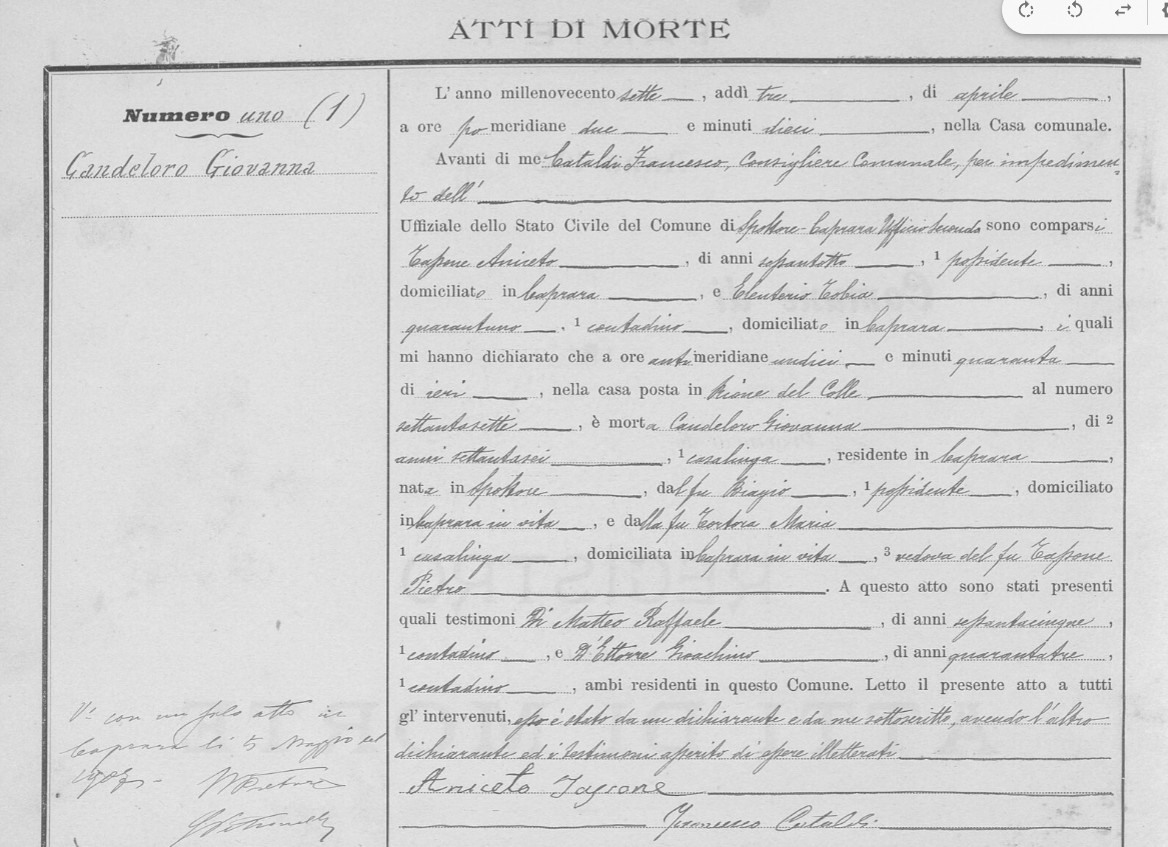 ATTI DI MORTE
Numero uno (1)
Candeloro Giovanna
L' anno millenovecento sette, addì tre, di aprile,
a ore pomeridiane due e minuti dieci, nella Casa comunale.
Avanti di me Cataldi Francesco, Consigliere Comunale, per impedimen=
to dell'
Uffiziale dello Stato Civile del Comune di Spoltore-Caprara Ufficio Secondo sono comparsi
Tassone Aniceto, di anni sessantotto, 1 possidente,
domiciliato in Caprara, e Eleuterio Tobia, di anni
quarantuno, 1 contadino, domiciliato in Caprara, i quali
mi hanno dichiarato che a ore antimeridiane undici e minuti quaranta
di ieri, nella casa posta in Rione del Colle al numero
settantasette, è morta Candeloro Giovanna, di 2
anni settantasei, 1 casalinga, residente in Caprara,
nata in Spoltore, dal fu Biagio, 1 possidente, domiciliato
in Caprara in vita, e dalla fu Tortora Maria
1 casalinga, domiciliata in Caprara in vita, 3 vedova del fu Tassone
Pietro. A questo atto sono stati presenti
quali testimoni Di Matteo Raffaele, di anni sessantacinque,
1 contadino, e D'Ettorre Gioachino, di anni quarantatre,
1 contadino, ambi residenti in questo Comune. Letto il presente atto a tutti
gl' intervenuti, esso è stato da un dichiarante e da me sottoscritto, avendo l'altro
dichiarante ed i testimoni asserito di essere illetterati
Aniceto Tassone
Francesco Cataldi
V° con un solo atto in
Caprara li 5 Maggio